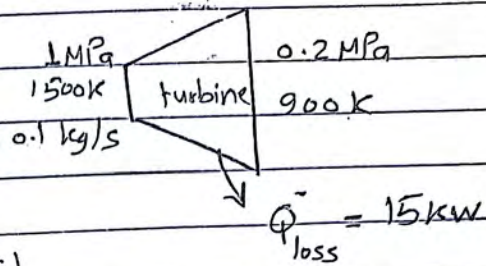 1MPa
1500K
0.1 kg/s
turbine
0.2 MPa
900K
Q̇loss = 15kW